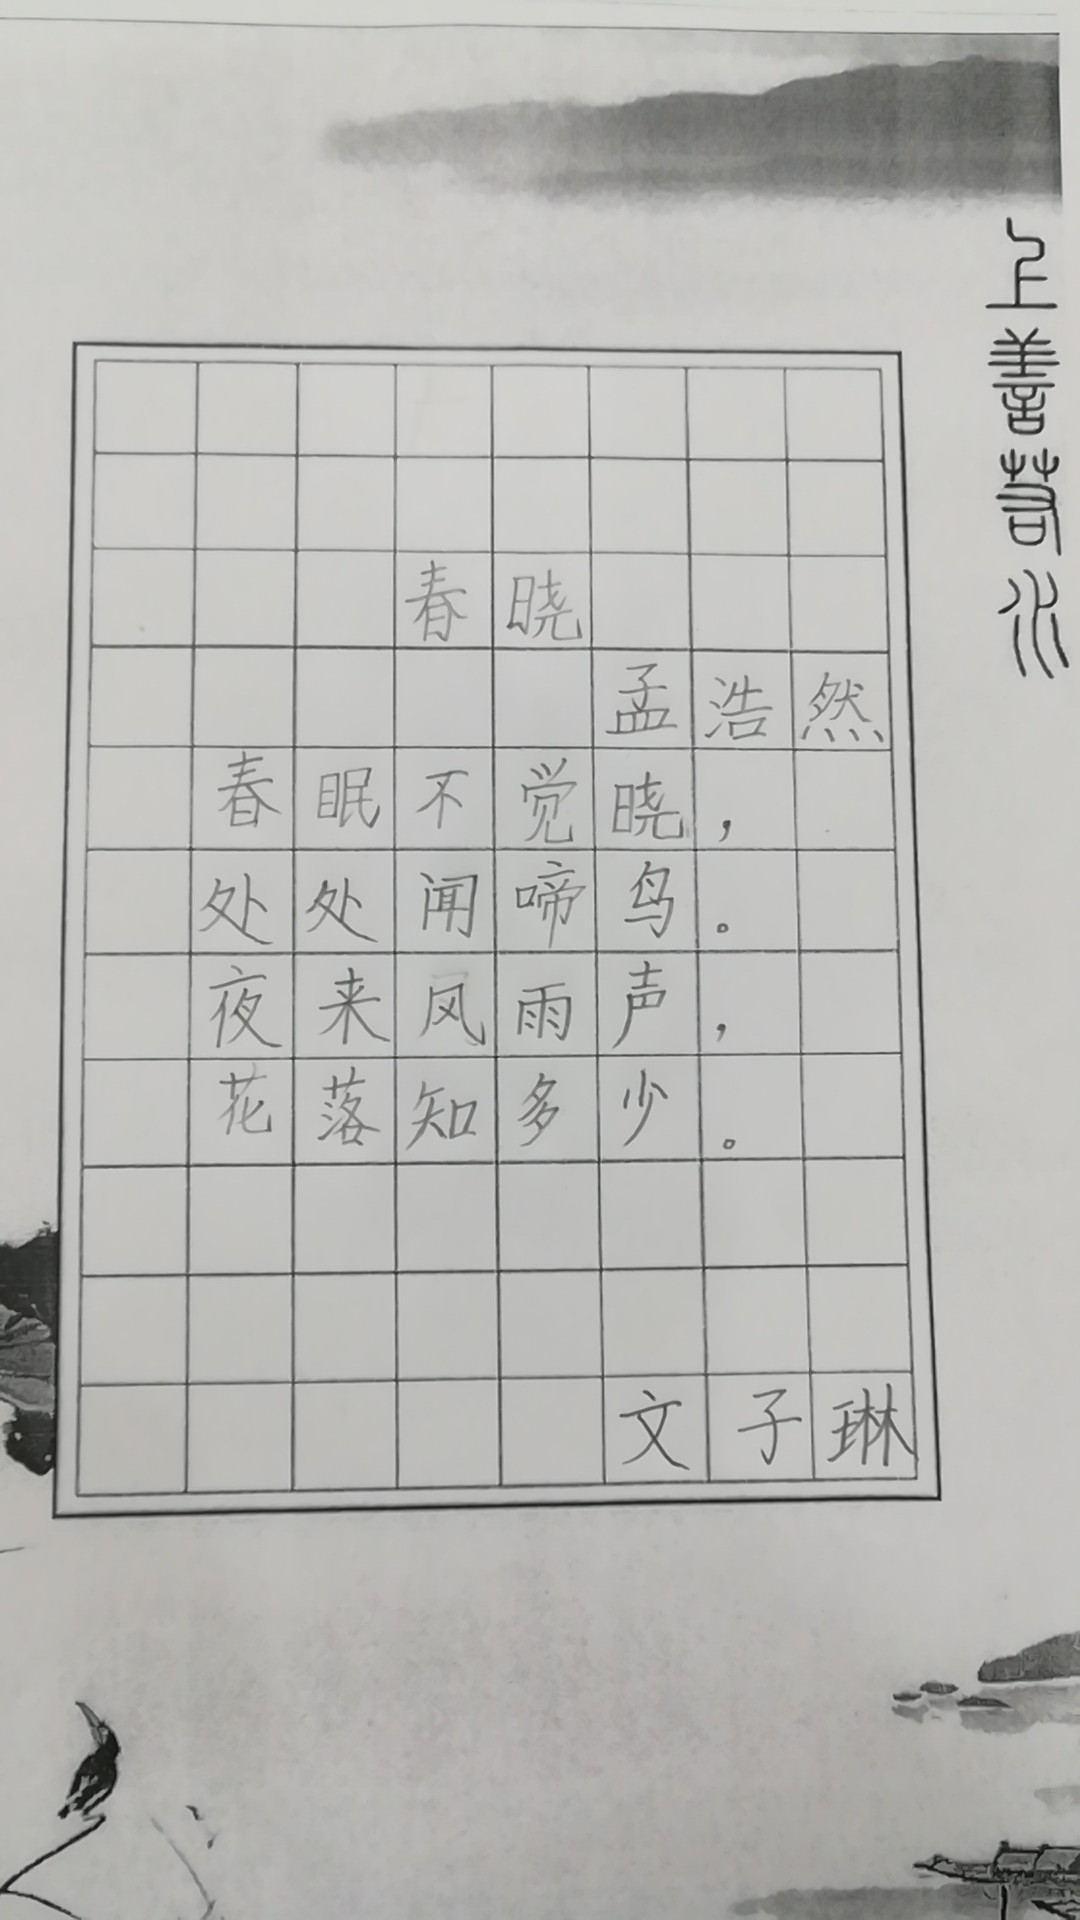 上善若水
春晓
孟浩然
春眠不觉晓，
处处闻啼鸟。
夜来风雨声，
花落知多少。
文子琳